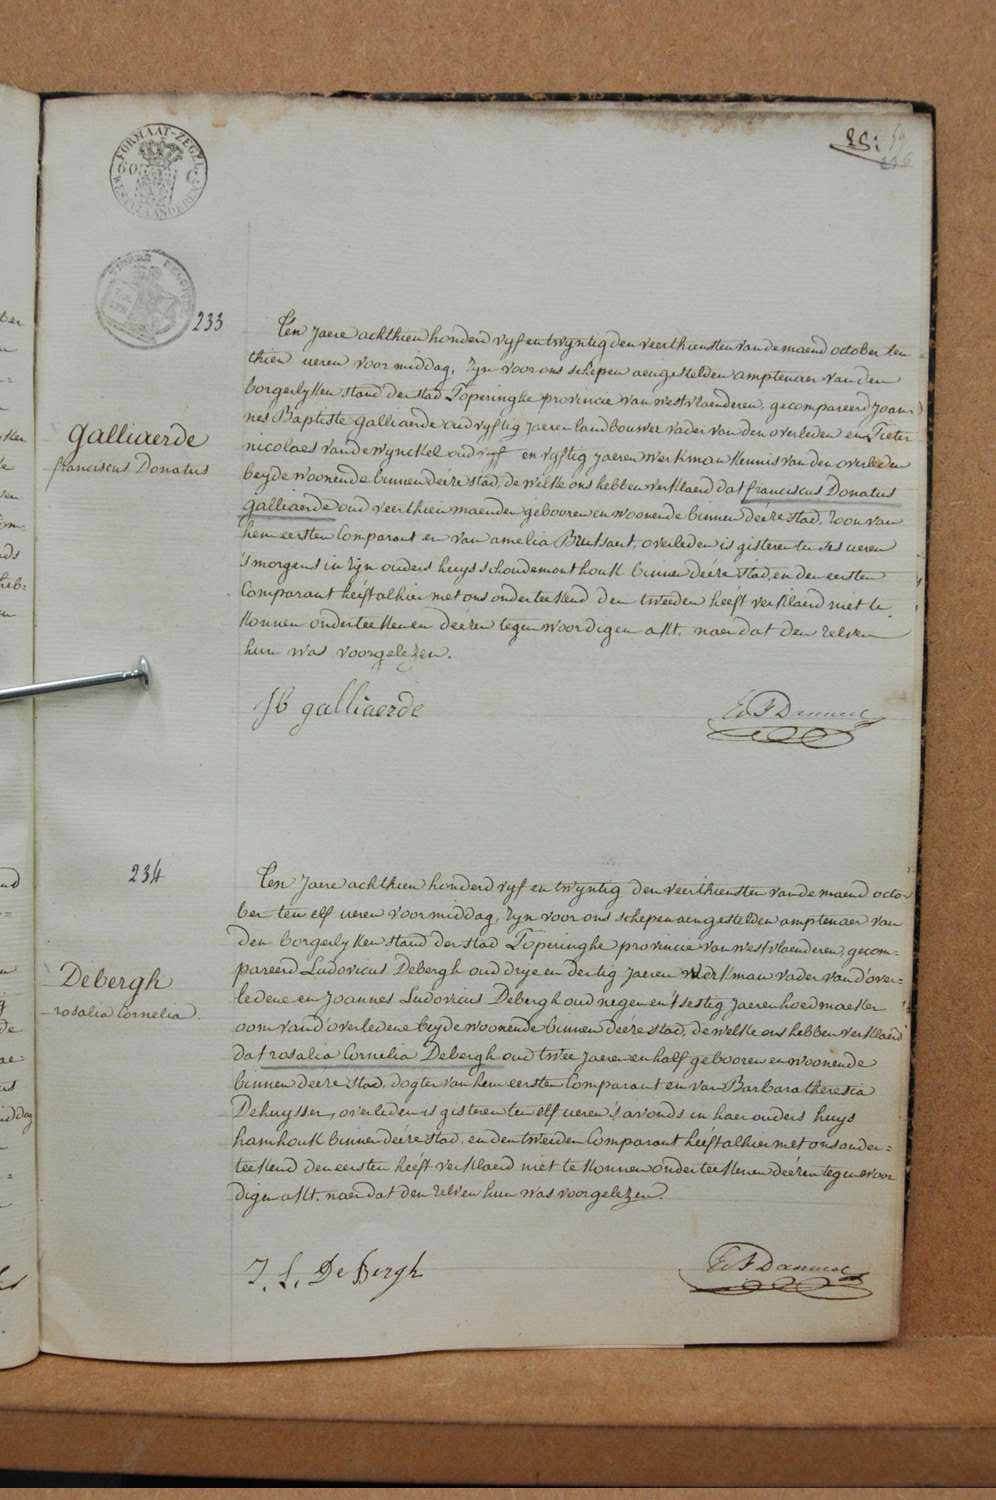 FORMAAT-ZEGEL
WESTVLAANDEREN
59
233
Ten Jaere achthien honderd vyf en twyntig den veerthiensten van de maend october ten
thien ueren voor middag, Zyn voor ons schepen aengestelden amptenaer van den
borgerlyken stand der stad Poperinghe provincie van westvlaenderen, gecompareerd Joan-
nes Baptiste Galliaerde oud vyftig Jaeren landbouwer vader van den overleden en Pieter
nicolaes vandewynckel oud vyf en vyftig Jaeren werkman kennis van den overleden
beyde woonende binnen deéze stad, de welke ons hebben verklaerd dat franciscus Donatus
Galliaerde oud veerthien maenden gebooren en woonende binnen deéze stad, Zoon van
hem eersten Comparant en van amelia Brutsaert, overleden is gisteren ten ses ueren
's morgens in Zyn ouders huys schoudemont houk binnen deéze stad, en den eersten
Comparant heéft alhier met ons onderteekend den tweeden heéft verklaerd niet te
konnen onderteekenen deézen tegenwoordigen akt, naer dat den zelven
hun was voorgelezen.
Galliaerde
franciscus Donatus
JB galliaerde
234
Ten Jaere achthien honderd vyf en twyntig den veerthiensten van de maend octo-
ber ten elf ueren voor middag, Zyn voor ons schepen aengestelden amptenaer van
den borgerlyken stand der stad Poperinghe provincie van westvlaenderen, gecom-
pareerd Ludovicus Debergh oud drye en dertig Jaeren werkman vader vand'over-
ledene en Joannes Ludovicus Debergh oud negen en 't sestig Jaeren hoedmaeker
oom vand'overledene beyde woonende binnen deéze stad, de welke ons hebben verklaerd
dat rosalia Cornelia Debergh oud twee Jaeren en half gebooren en woonende
binnen deeze stad, dogter van hem eersten Comparant en van Barbara theresia
Dehuysser, overleden is gisteren ten elf ueren 's avonds in haer ouders huys
hamhouk binnen deéze stad, en den tweeden Comparant heéft alhier met ons onder-
teekend den eersten heéft verklaerd niet te konnen onderteekenen deézen tegenwoor
digen akt, naer dat den zelven hun was voorgelezen.
Debergh
rosalia Cornelia
J. L. DeBergh